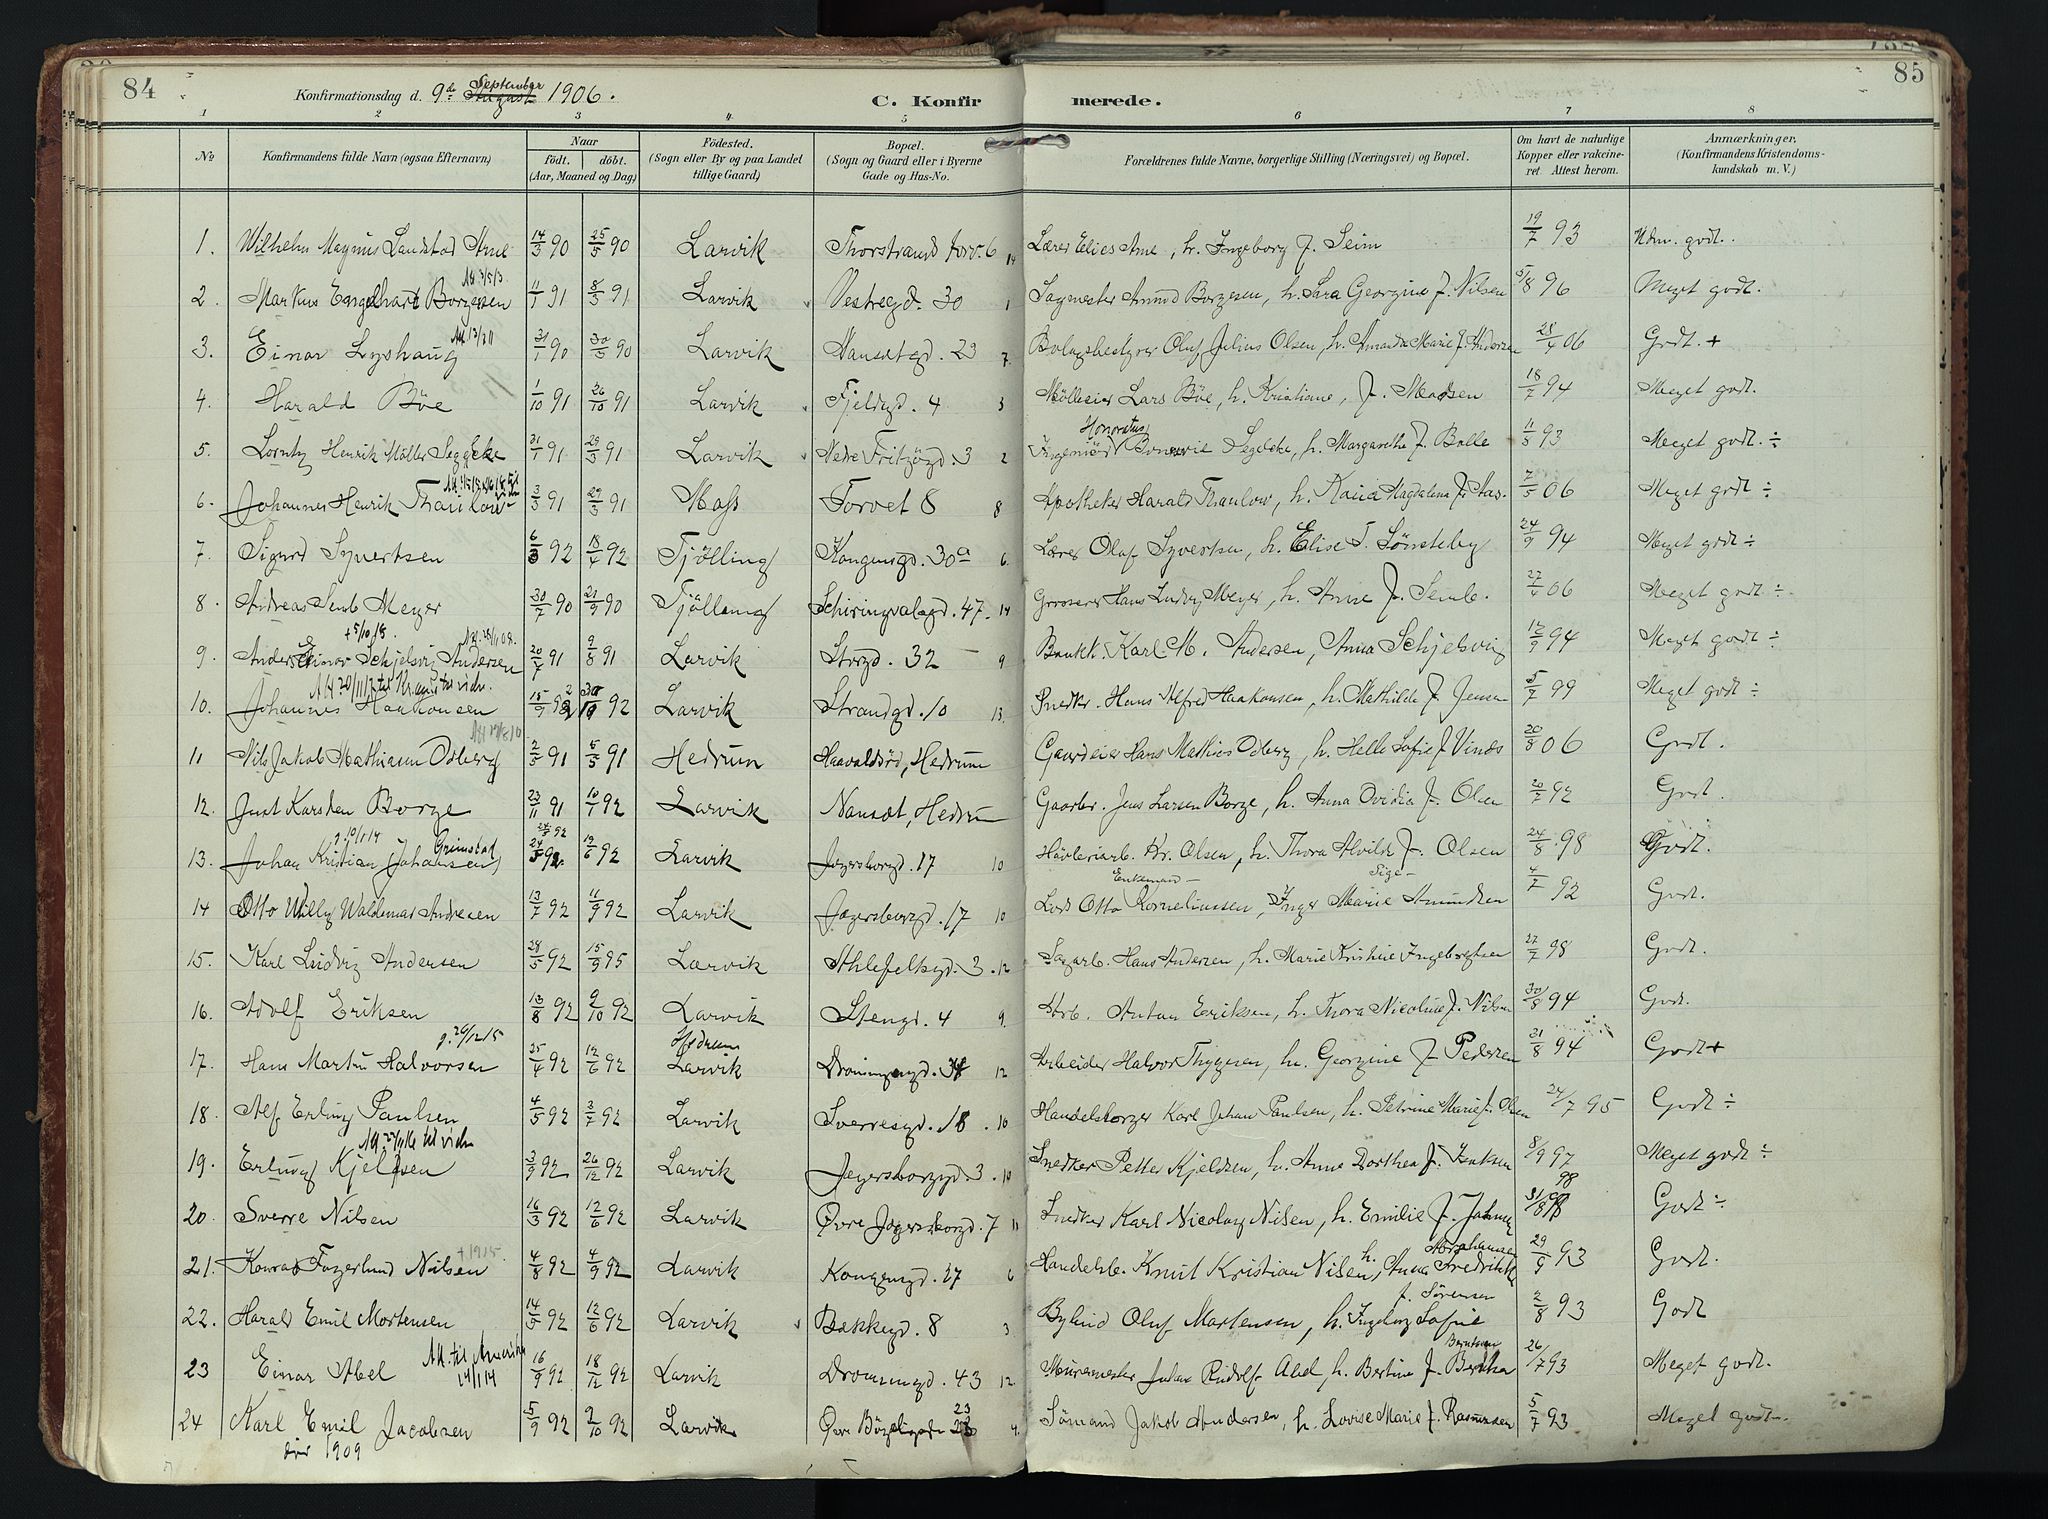 84
Konfirmationsdag d. 9de September August 1906.
C. Konfirmerede.
85
1 2 3 4 5 6 7 8
No
Konfirmandens fulde Navn (ogsaa Efternavn)
Naar
födt. döbt.
(Aar, Maaned og Dag)
Födested.
(Sogn eller By og paa Landet tillige Gaard)
Bopæl.
(Sogn og Gaard eller i Byerne Gade og Hus-No.
Forældrenes fulde Navne, borgerlige Stilling (Næringsvei) og Bopæl.
Om havt de naturlige Kopper eller vakcineret. Attest herom.
Anmærkninger.
(Konfirmandens Kristendomskundskab m. V.)
1. Wilhelm Magnus Landstad Arne 14/3 90 25/5 90 Larvik Thorstrand torv. 6 14 Lærer Elies Arne, h. Ingeborg f. Seim 19/7 93 Udm. godt.
2. Markus Engelhart Borgersen 11/1 91 8/3 91 Larvik Vestregd. 30 1 Sagmester Amund Borgesen, h. Sara Georgine f. Nilsen 5/8 96 Meget godt.
3. Einar Lyshaug 31/1 90 30/3 90 Larvik Nansetgd. 23 7. Bolagsbestyrer Oluf Julius Olsen, h. Amanda Marie f. Andersen 28/4 06 Godt. +
4. Harald Böe 1/10 91 26/10 91 Larvik Fjeldgd. 4 3 Mölleeier Lars Böe, h. Kristiane, f. Madsen 18/7 94 Meget godt.
5. Lorntz Henrik Möller Segelcke 31/1 91 29/3 91 Larvik Nedre Fritzögd. 3 2 Ingeniör Honoratus Bonnevie Segelcke, h. Margarethe f. Bolle 11/8 93 Meget godt. ÷
6. Johannes Henrik Thaulow 3/3 91 29/3 91 Moss Torvet 8 8 Apotheker Harald Thaulow, h. Kaia Magdalena f. Aas. 7/5 06 Meget godt ÷
7. Sigurd Syvertsen 6/3 92 18/4 92 Tjölling Kongensgd. 30a 6. Lærer Olaf Syvertsen, h. Elise f. Sönsteby 24/9 94 Meget godt ÷
8. Andreas Semb Meyer 30/7 90 21/9 90 Tjölling Schiringsalsgd. 47. 14 Grosserer Hans Ludvig Meyer, h. Anne f. Semb. 27/4 06 Meget godt ÷
+ 5/10 18. 28/1 08.
9. Anders Einar Schjelsvig Andersen 20/7 91 9/8 91 Larvik Storgd. 32 9 Bankk. Karl M. Andersen, Anna Schjelsvig 12/9 94 Meget godt ÷
10. Johannes Haakonsen 15/9 92 30/10 92 Larvik Strandgd. 10 13. Snedker Hans Alfred Haakonsen, h. Mathilde f. Jensen 5/7 99 Meget godt ÷
11 Nils Jakob Mathiasen Odberg 2/3 91 5/5 91 Hedrum Haavaldsröd, Hedrum Gaardeier Hans Mathias Odberg, h. Helle Sofie f. Vinds 20/8 06 Godt.
12. Just Karsten Borge 23/11 91 10/1 92 Larvik Nanset, Hedrum Gaarbr. Jens Larsen Borge, h. Anna Ovidia f. Olsen 20/7 92 Godt.
g. 10/1 14 Grimstad
13. Johan Kristian (Johansen) 24/5 92 19/6 92 Larvik Jegersborgd. 17 10 Hövleriarb. Kr. Olsen, h. Thora Alvilde f. Olsen 24/8 98 Godt.
14 Otto Willy Waldemar Andresen 13/7 92 11/9 92 Larvik Jægersborgd. 17 10 Enkemand Lods Otto Korneliussen, Pige Inger Marie Amundsen 4/7 92 Godt.
15. Karl Ludvig Andersen 28/5 92 15/9 95 Larvik Ahlefeltsgd. 3. 12 Sagarb. Hans Andersen, h. Marie Kristine Ingebregtsen 27/7 98 Godt.
16. Adolf Eriksen 13/8 92 2/10 92 Larvik Stengd. 4 9. Arb. Anton Eriksen, h. Thora Nicoline f. Nilsen 30/8 94 Godt.
g. 26/12 15
17. Hans Martin Halvorsen 25/4 92 12/6 92 Hedrum Larvik Dronningensgd. 38 12 Arbeider Halvor Thygesen, h. Georgine f. Pedersen 31/8 94 Godt +
18. Alf Erling Paulsen 4/5 92 3/7 92 Larvik Sverresgd. 18. 10 Handelsborger Karl Johan Paulsen, h. Petrine Marie f. Olsen 24/7 95 Godt ÷
19. Erling Kjeldsen 3/9 92 26/12 92 Larvik Jegersborggd. 3. 10 Snedker Petter Kjeldsen, h. Anne Dorthea f. Isaksen 8/9 97 Meget godt ÷
20. Sverre Nilsen 16/3 92 12/6 92 Larvik Övre Jegersborgd. 7 11 Snedker Karl Nicolay Nilsen, h. Emilie f. Johnsen 31/8 98 Godt ÷
+ 1915.
21. Konrad Fagerlund Nilsen 4/8 92 4/9 92 Larvik Kongensgd. 27 6 Handelsb. Knut Kristian Nilsen, h. Anna Fredrikke Abrahamsen 29/9 93 Godt.
22. Harald Emil Mortensen 14/5 92 12/6 92 Larvik Bækkegd. 8 3 Bybud Oluf Martensen, h. Ingeborg Sofie f. Sörensen 2/8 93 Godt
23 Einar Abel 16/9 92 18/12 92 Larvik Dronningd. 43 12. Murermester Johan Rudolf Abel, h. Bertine f. Berntsen 26/7 93 Meget godt.
Att. til Amerika 14/1 14
24 Karl Emil Jacobsen 5/9 92 2/10 92 Larvik Övre Bögeligade 23 4. Sömand Jakob Andersen, h. Lovise Marie f. Rasmussen 5/7 93 Meget godt.
1909